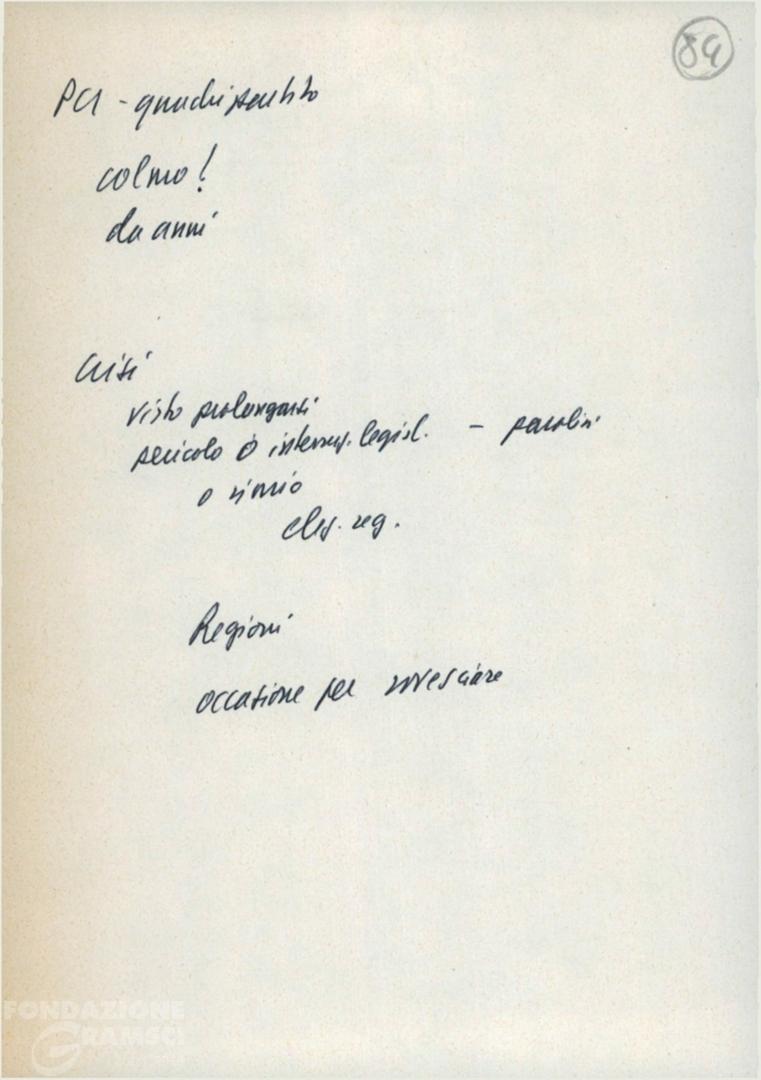 84
PCI - quadripartito
colmo!
da anni
Crisi
visto prolungarsi
pericolo o interruz. legisl. -
o rinvio
elez. reg.
Regioni
occasione per rovesciare
FONDAZIONE
GRAMSCI